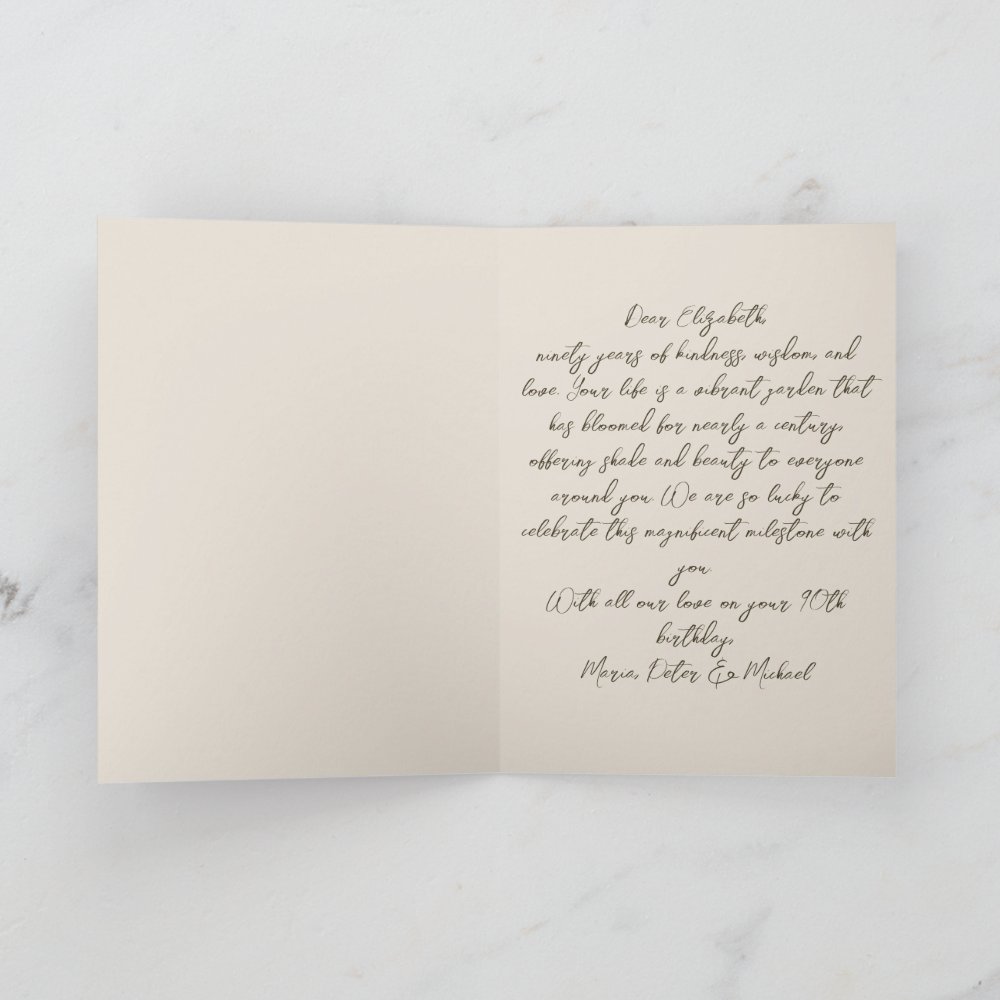 Dear Elizabeth,
ninety years of kindness, wisdom, and
love. Your life is a vibrant garden that
has bloomed for nearly a century,
offering shade and beauty to everyone
around you. We are so lucky to
celebrate this magnificent milestone with
you.
With all our love on your 90th
birthday,
Maria, Peter & Michael